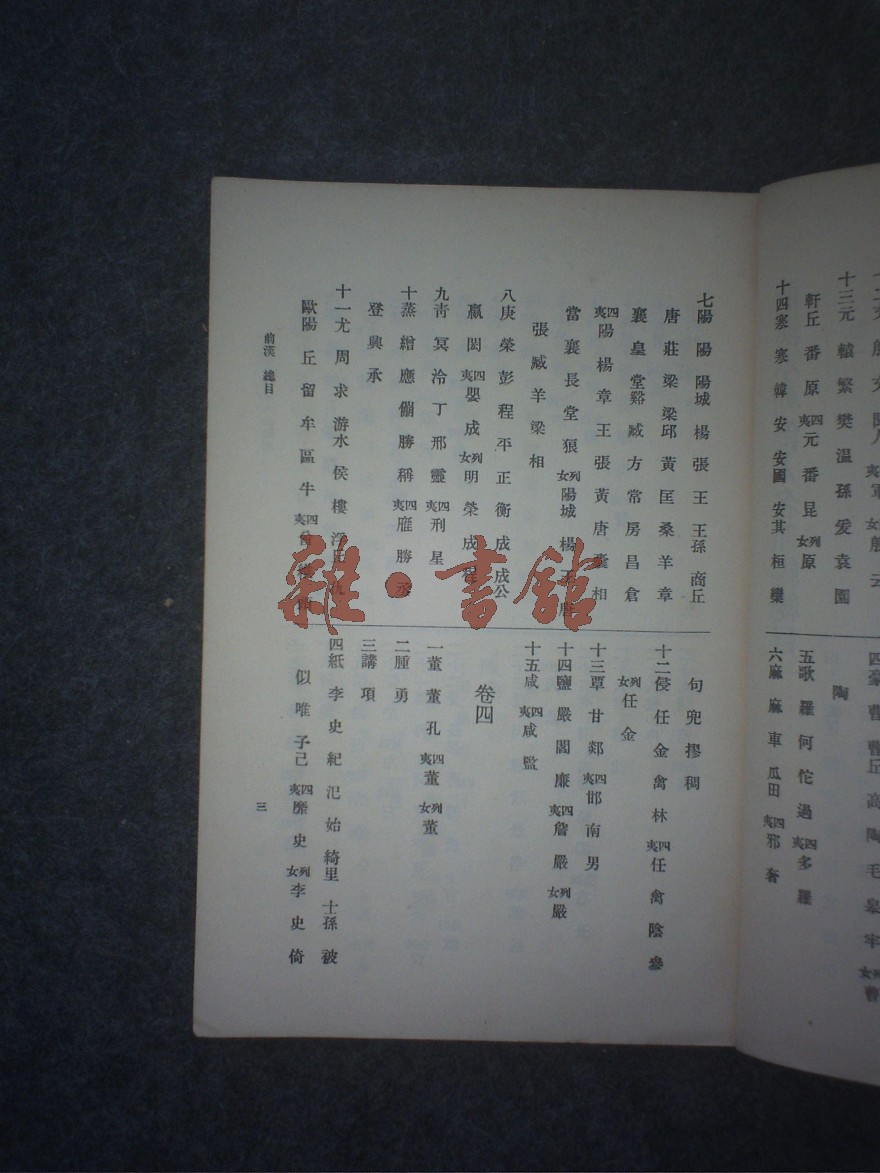 軒丘 番 原 四夷 元 番 昆 列女 原
十四寒 寒 韓 安 安國 安其 桓 欒
陶
五歌 羅 何 佗 過 四夷 多 羅
六麻 麻 車 瓜田 四夷 邪 奢
七陽 陽 陽城 楊 張 王 王孫 商丘
唐 莊 梁 梁邱 黃 匡 桑 羊 章
襄 皇 堂谿 臧 方 常 房 昌 倉
四夷 陽 楊 章 王 張 黃 唐 囊 相
當 襄 長 堂 狼 列女 陽城 楊 王 唐
張 臧 羊 梁 相
八庚 榮 彭 程 平 正 衡 成 成公
嬴 閎 四夷 嬰 成 列女 明 榮 成 程
九靑 冥 泠 丁 邢 靈 四夷 刑 星
十蒸 繒 應 倗 勝 稱 四夷 䧹 勝 丞
登 興 承
十一尤 周 求 游水 侯 樓 浮丘 仇
歐陽 丘 留 牟 區 牛 四夷
句 兜 摎 稠
十二侵 任 金 禽 林 四夷 任 禽 陰 參
列女 任 金
十三覃 甘 郯 四夷 邯 南 男
十四鹽 嚴 閻 廉 四夷 詹 嚴 列女 嚴
十五咸 四夷 咸 監
卷四
一董 董 孔 四夷 董 列女 董
二腫 勇
三講 項
四紙 李 史 紀 氾 始 綺里 士孫 被
似 唯 子 己 四夷 靡 史 列女 李 史 倚
前漢 總目
三
雜·書館